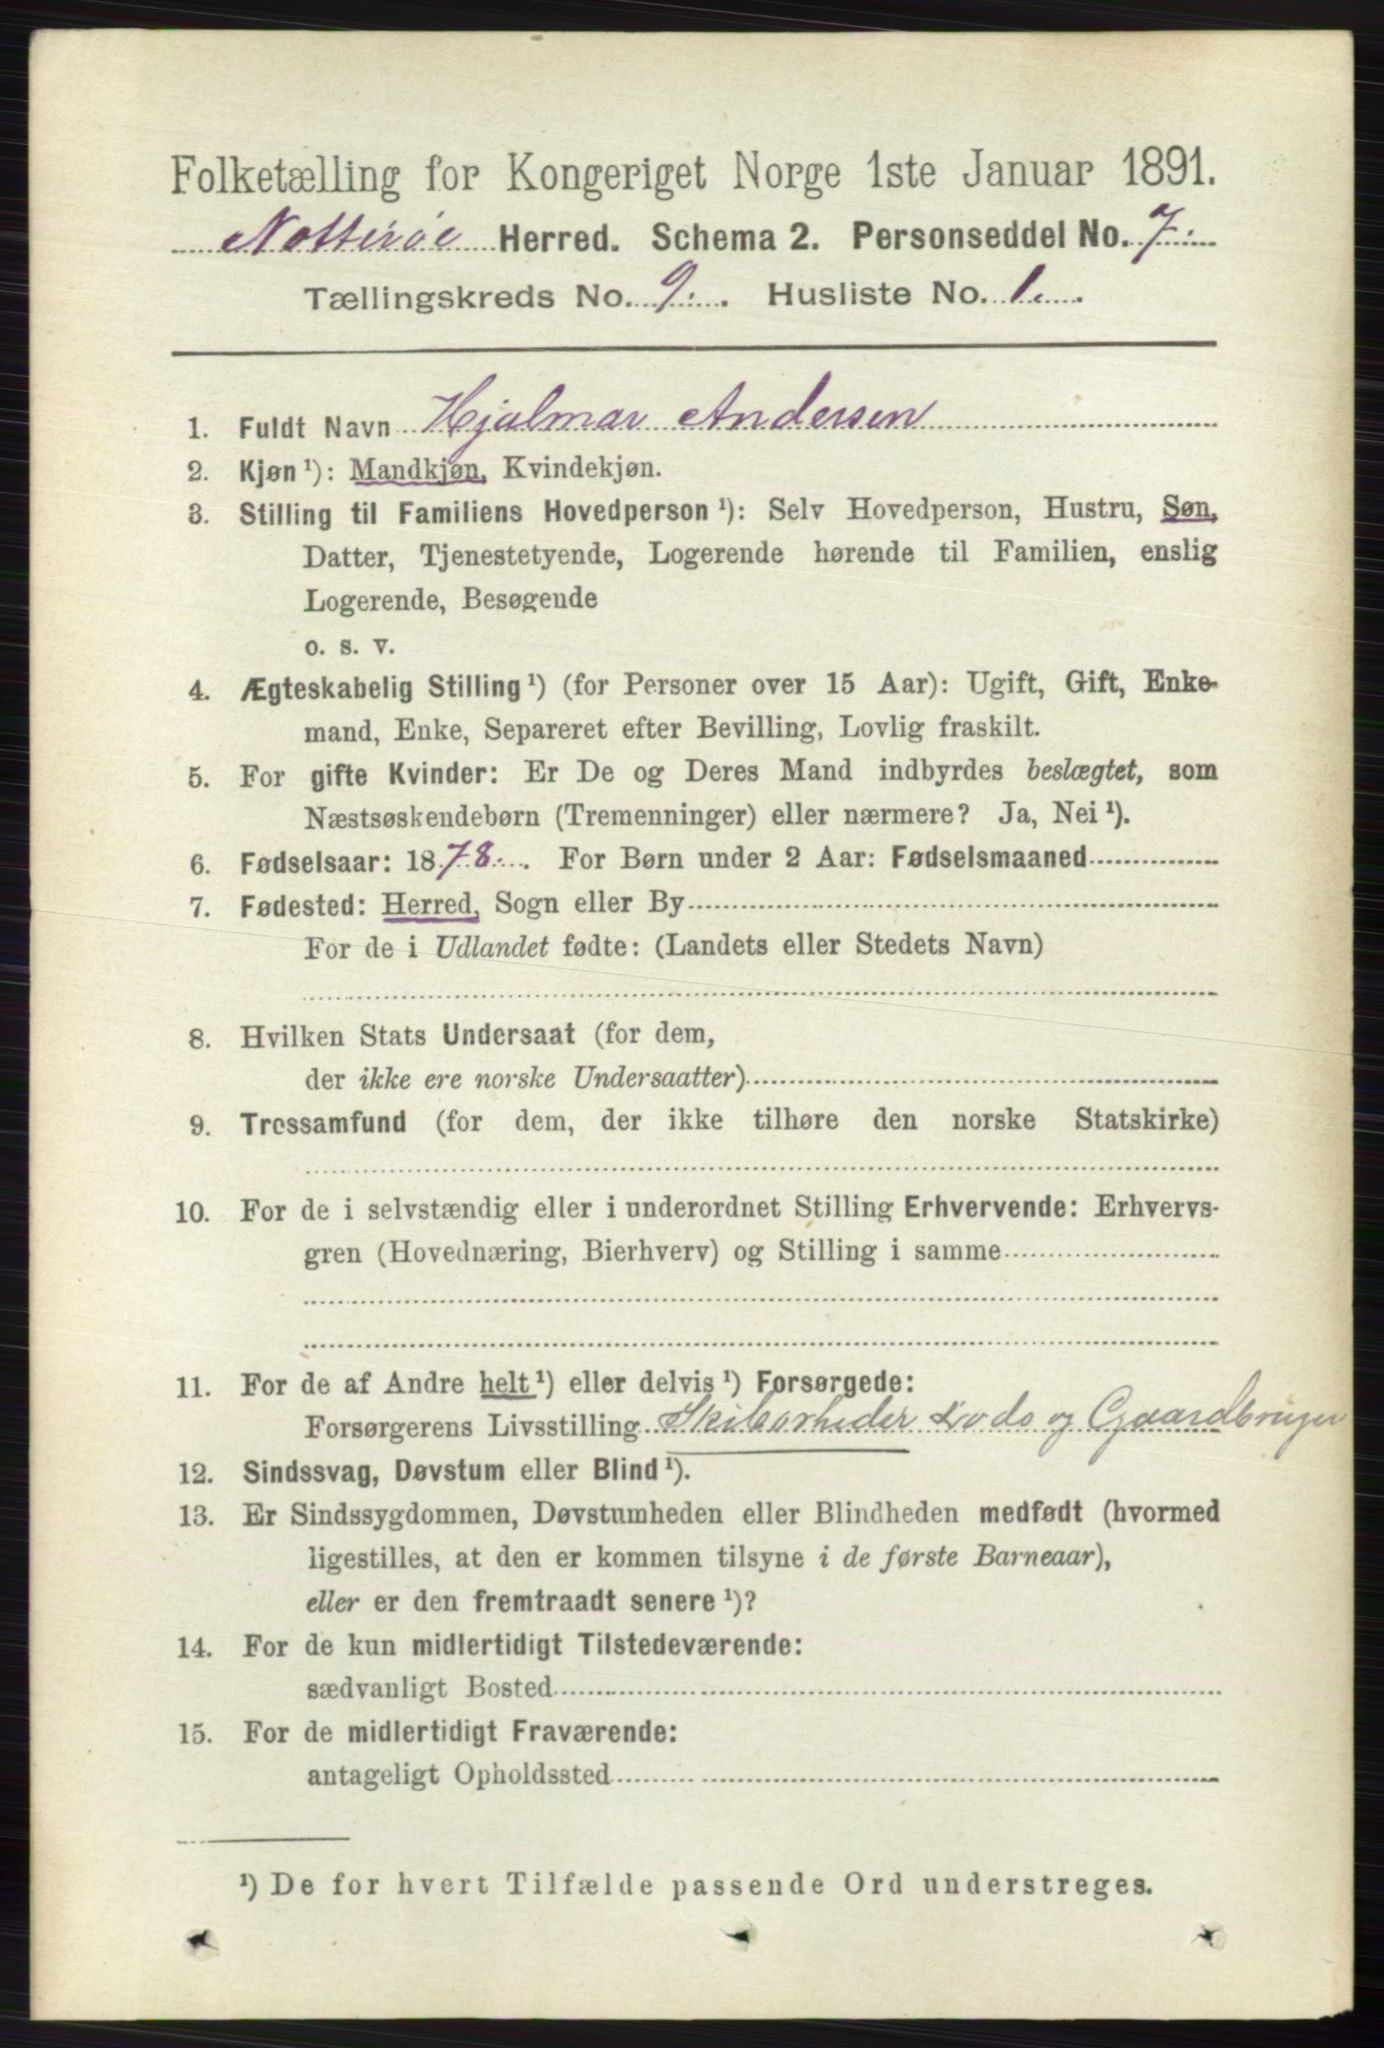 Folketælling for Kongeriget Norge 1ste Januar 1891.
Nøtterøe Herred. Schema 2. Personseddel No. 7.
Tællingskreds No. 9. Husliste No. 1.
1. Fuldt Navn Hjalmar Andersen
2. Kjøn ¹): Mandkjøn, Kvindekjøn.
3. Stilling til Familiens Hovedperson ¹): Selv Hovedperson, Hustru, Søn,
Datter, Tjenestetyende, Logerende hørende til Familien, enslig
Logerende, Besøgende
o. s. v.
4. Ægteskabelig Stilling ¹) (for Personer over 15 Aar): Ugift, Gift, Enke-
mand, Enke, Separeret efter Bevilling, Lovlig fraskilt.
5. For gifte Kvinder: Er De og Deres Mand indbyrdes beslægtet, som
Næstsøskendebørn (Tremenninger) eller nærmere? Ja, Nei ¹).
6. Fødselsaar: 1878. For Børn under 2 Aar: Fødselsmaaned
7. Fødested: Herred, Sogn eller By
For de i Udlandet fødte: (Landets eller Stedets Navn)
8. Hvilken Stats Undersaat (for dem,
der ikke ere norske Undersaatter)
9. Trossamfund (for dem, der ikke tilhøre den norske Statskirke)
10. For de i selvstændig eller i underordnet Stilling Erhvervende: Erhvervs-
gren (Hovednæring, Bierhverv) og Stilling i samme
11. For de af Andre helt ¹) eller delvis ¹) Forsørgede:
Forsørgerens Livsstilling Skibsrheder Lods og Gaardbruger
12. Sindssvag, Døvstum eller Blind ¹).
13. Er Sindssygdommen, Døvstumheden eller Blindheden medfødt (hvormed
ligestilles, at den er kommen tilsyne i de første Barneaar),
eller er den fremtraadt senere ¹)?
14. For de kun midlertidigt Tilstedeværende:
sædvanligt Bosted
15. For de midlertidigt Fraværende:
antageligt Opholdssted
¹) De for hvert Tilfælde passende Ord understreges.